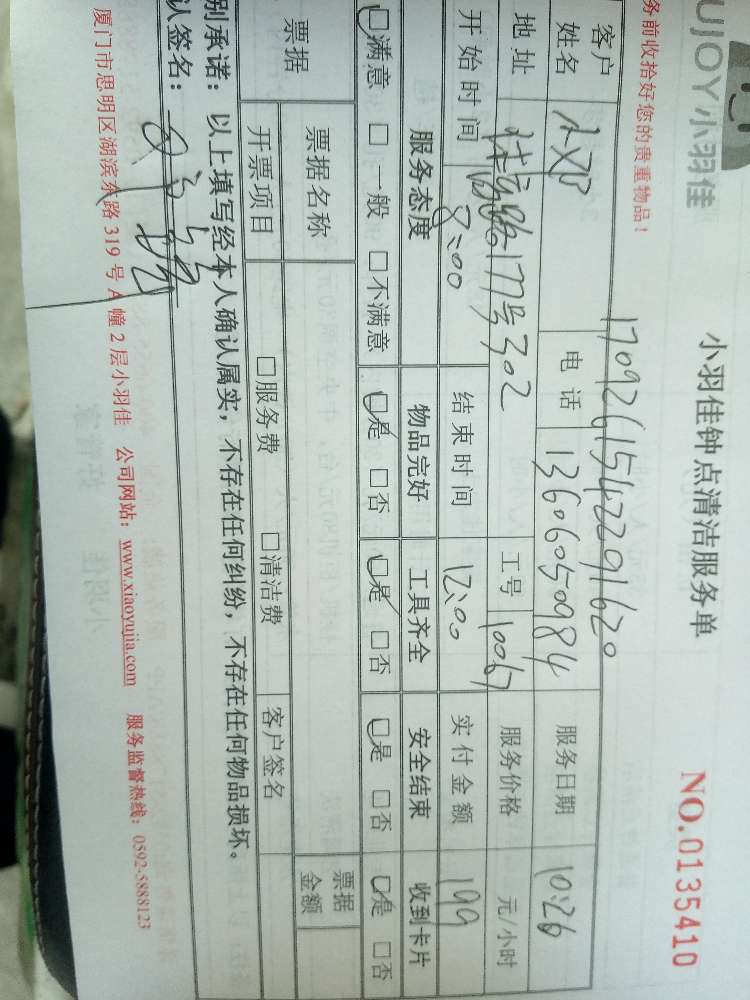 UJOY小羽佳
小羽佳钟点清洁服务单
NO.0135410
务前收拾好您的贵重物品！
17092615422291620
客户姓名 电话 13606050984 服务日期 10:26
地址 177号302 工号 10067 服务价格 元/小时
开始时间 8:00 结束时间 12:00 实付金额 199
服务态度 物品完好 工具齐全 安全结束 收到卡片
□满意 □一般 □不满意 □是 □否 □是 □否 □是 □否 □是 □否
票据 票据名称 票据金额
开票项目 □服务费 □清洁费 客户签名
别承诺：以上填写经本人确认属实，不存在任何纠纷，不存在任何物品损坏。
认签名：
厦门市思明区湖滨东路 319 号 A 幢 2 层小羽佳 公司网站：www.xiaoyujia.com 服务监督热线：0592-5888123